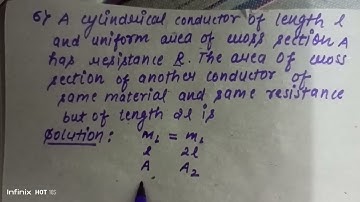 6) A cylindrical conductor of length l
and uniform area of cross section A
has resistance R. The area of cross
section of another conductor of
same material and same resistance
but of length 2l is
Solution: m₁ = m₂
l 2l
A A₂
Infinix HOT 10S